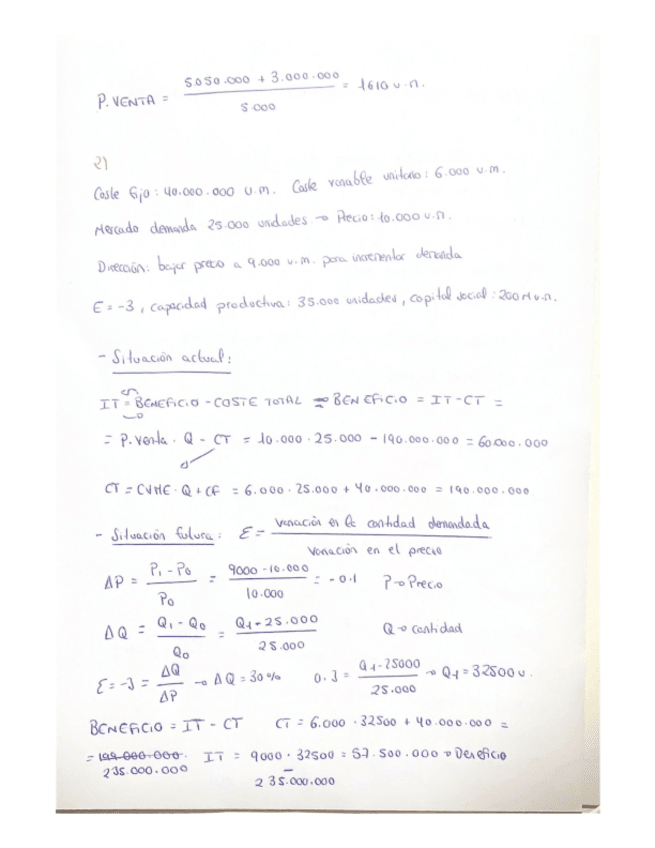 P. VENTA = 5.050.000 + 3.000.000 / 5.000 = 1610 u.n.
2)
Coste fijo: 40.000.000 u.m. Coste variable unitario: 6.000 u.m.
Mercado demanda 25.000 unidades → Precio: 10.000 u.n.
Dirección: bajar precio a 9.000 u.m. para incrementar demanda
E = -3, capacidad productiva: 35.000 unidades, capital social: 200 M u.n.
- Situación actual:
IT = BENEFICIO - COSTE TOTAL ⇒ BENEFICIO = IT - CT =
= P. venta · Q - CT = 10.000 · 25.000 - 190.000.000 = 60.000.000
CT = CVME · Q + CF = 6.000 · 25.000 + 40.000.000 = 190.000.000
- Situación futura: E = variación en la cantidad demandada / variación en el precio
ΔP = P1 - P0 / P0 = 9000 - 10.000 / 10.000 = - 0.1 P → Precio
ΔQ = Q1 - Q0 / Q0 = Q1 - 25.000 / 25.000 Q → cantidad
E = -3 = ΔQ / ΔP → ΔQ = 30% 0.3 = Q1 - 25000 / 25.000 → Q1 = 32500 u.
BENEFICIO = IT - CT CT = 6.000 · 32500 + 40.000.000 =
= 235.000.000 IT = 9000 · 32500 = 57.500.000 → Beneficio
- 235.000.000